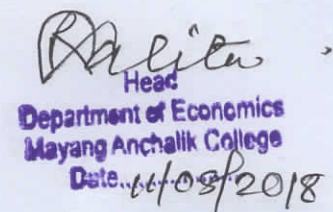 Head
Department of Economics
Mayang Anchalik College
Date...11/05/2018